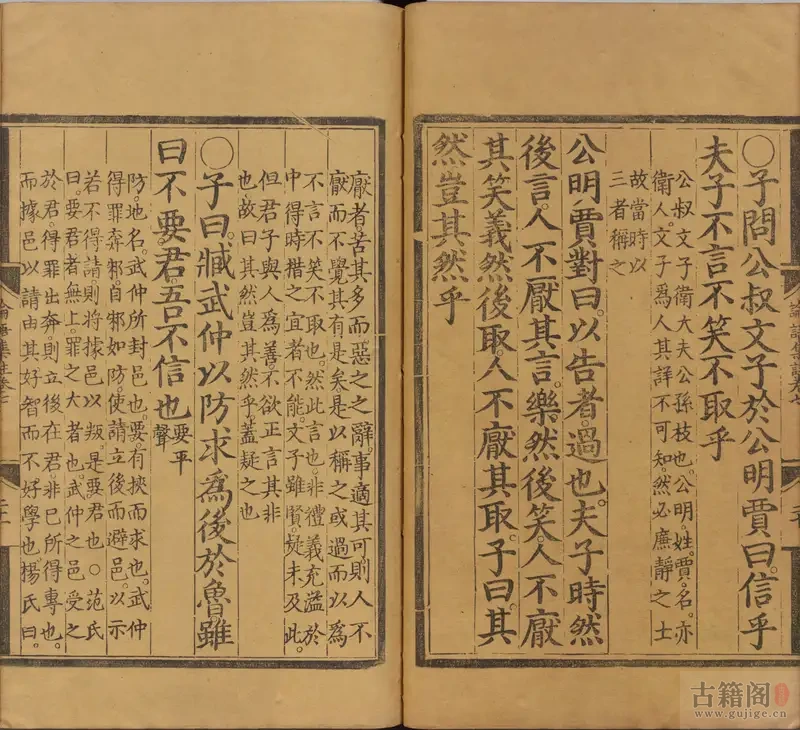 〇子問公叔文子於公明賈曰信乎
夫子不言不笑不取乎
公叔文子衛大夫公孫枝也。公明。姓。賈。名。亦
衛人。文子爲人其詳不可知。然必廉靜之士
故當時以
三者稱之
公明賈對曰。以告者。過也。夫子時然
後言。人不厭其言。樂然後笑。人不厭
其笑義然後取。人不厭其取。子曰。其
然豈其然乎
厭者。苦其多而惡之之辭。事適其可則人不
厭而不覺其有是矣是以稱之或過而以爲
不言不笑不取也。然此言也。非禮義充溢於
中得時措之宜者不能。文子雖賢。疑未及此。
但君子與人爲善。不欲正言其非
也故曰其然豈其然乎蓋疑之也
〇子曰。臧武仲以防求爲後於魯雖
曰不要君。吾不信也要平聲
防。地名。武仲所封邑也。要。有挾而求也。武仲
得罪奔邾。自邾如防。使請立後而避邑。以示
若不得請則將據邑以叛。是要君也。〇范氏
曰。要君者無上。罪之大者也。武仲之邑受之
於君。得罪出奔。則立後在君。非己所得專也。
而據邑以請。由其好智而不好學也。楊氏曰。
論語集註卷七
古籍阁
www.gujige.cn